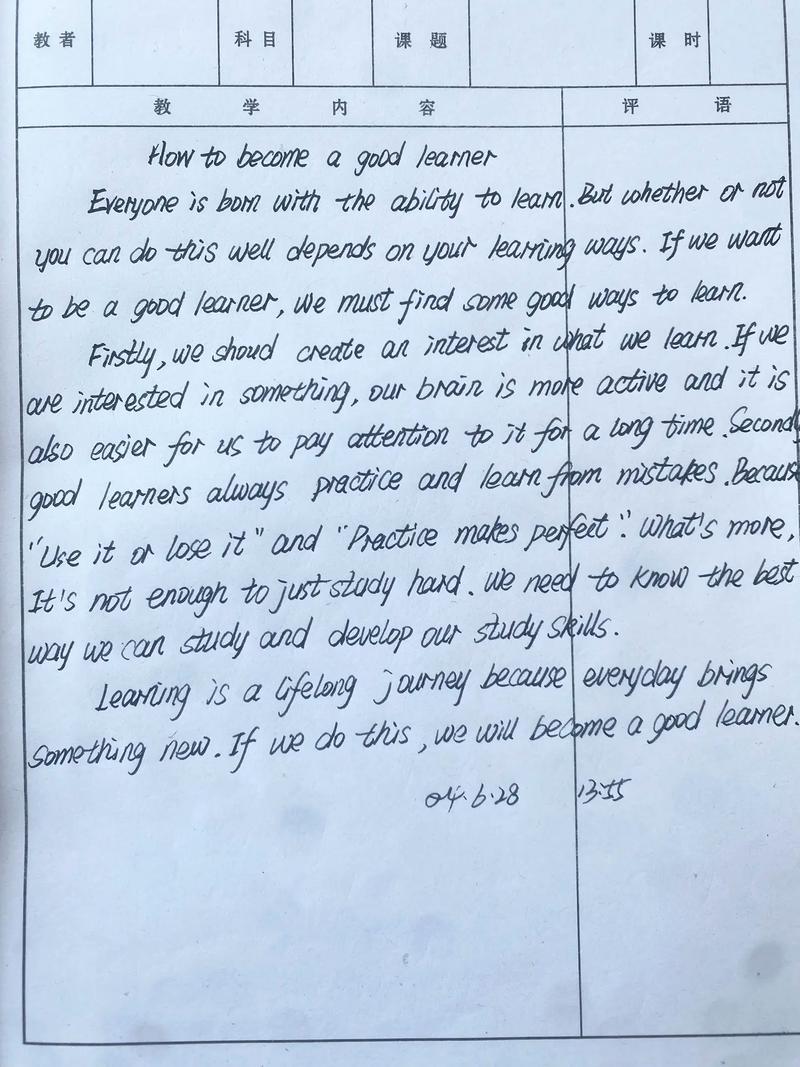 教者 科目 课题 课时
教学内容 评语
How to become a good learner
Everyone is born with the ability to learn. But whether or not
you can do this well depends on your learning ways. If we want
to be a good learner, we must find some good ways to learn.
Firstly, we shoud create an interest in what we learn. If we
are interested in something, our brain is more active and it is
also easier for us to pay attention to it for a long time. Secondly
good learners always practice and learn from mistakes. Because
"Use it or lose it" and "Practice makes perfect". What's more,
It's not enough to just study hard. We need to know the best
way we can study and develop our study skills.
Learning is a lifelong journey because everyday brings
something new. If we do this, we will become a good learner.
04.6.28 13:55